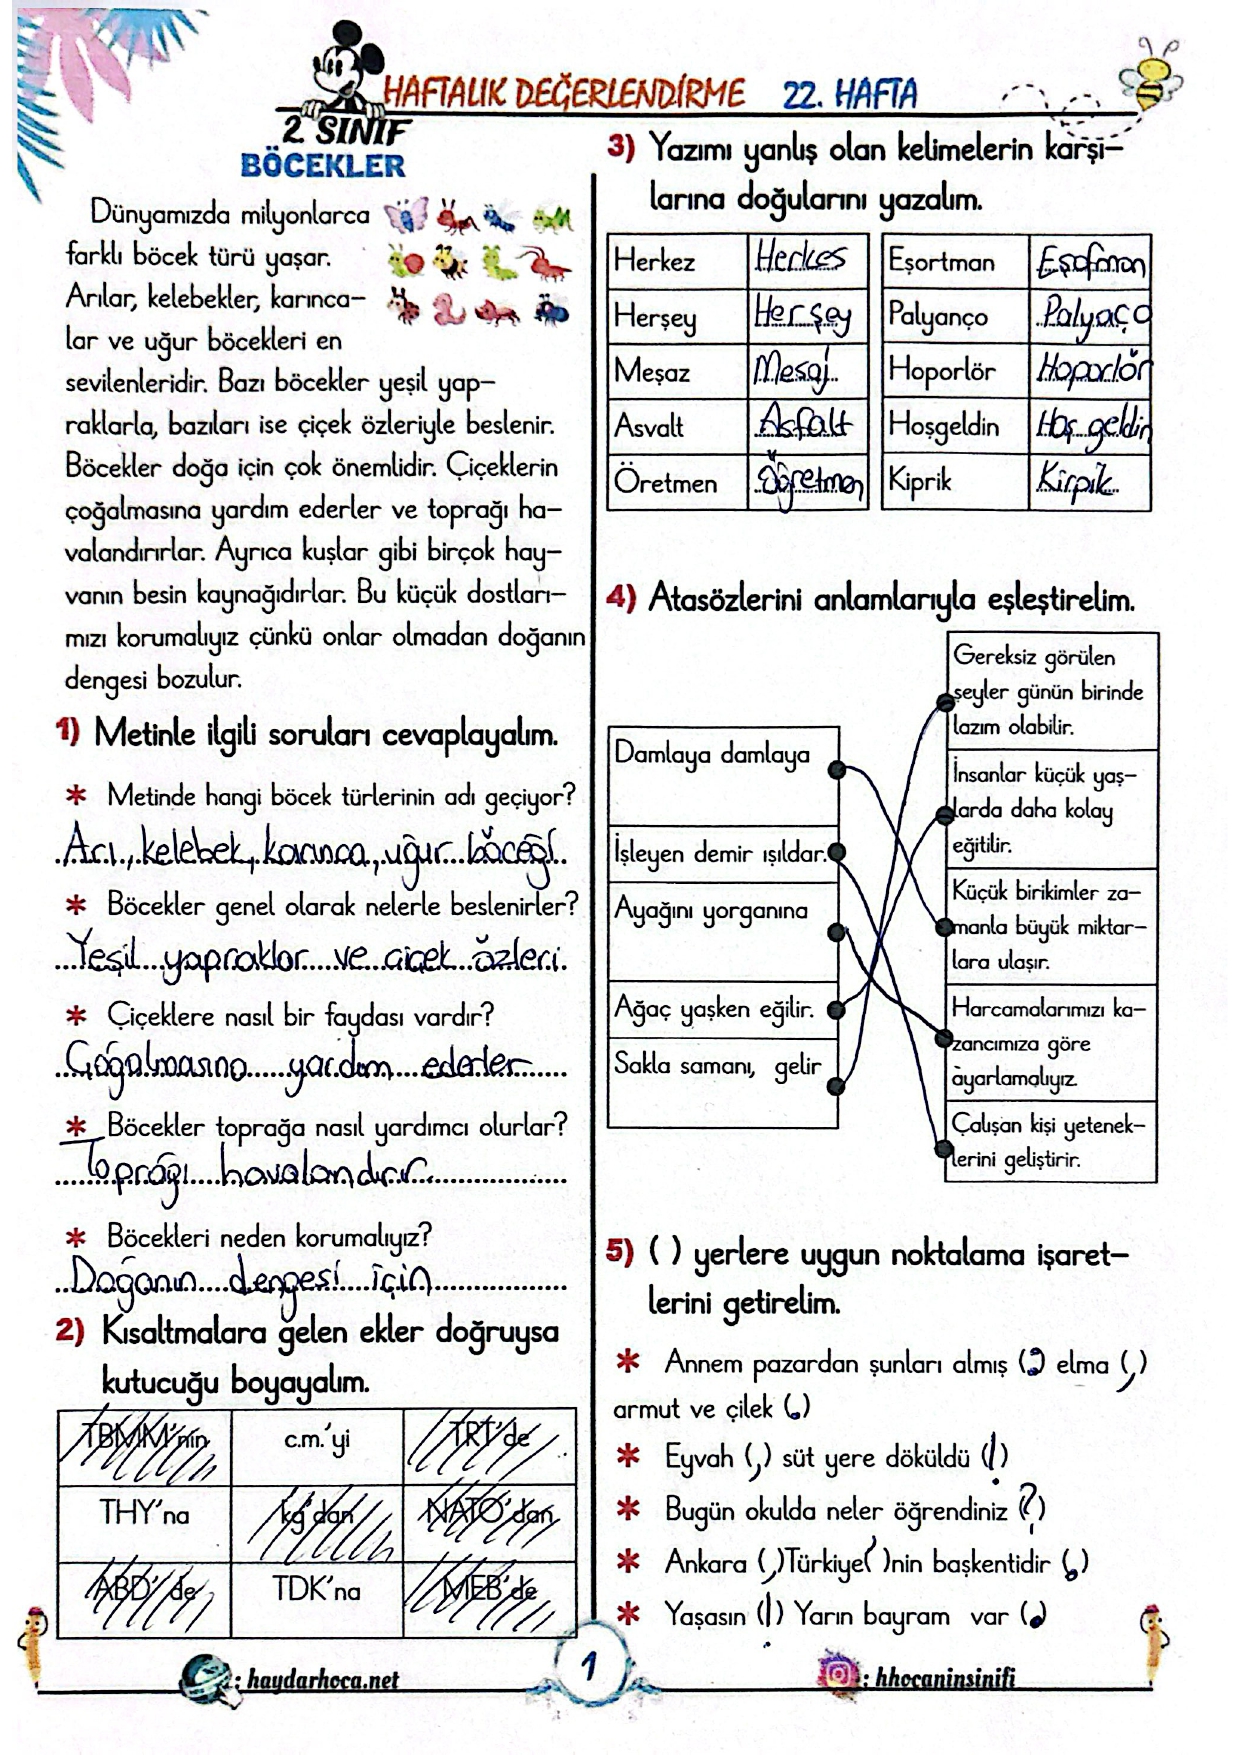 HAFTALIK DEĞERLENDİRME 22. HAFTA
2. SINIF
BÖCEKLER
Dünyamızda milyonlarca
farklı böcek türü yaşar.
Arılar, kelebekler, karınca-
lar ve uğur böcekleri en
sevilenleridir. Bazı böcekler yeşil yap-
raklarla, bazıları ise çiçek özleriyle beslenir.
Böcekler doğa için çok önemlidir. Çiçeklerin
çoğalmasına yardım ederler ve toprağı ha-
valandırırlar. Ayrıca kuşlar gibi birçok hay-
vanın besin kaynağıdırlar. Bu küçük dostları-
mızı korumalıyız çünkü onlar olmadan doğanın
dengesi bozulur.
1) Metinle ilgili soruları cevaplayalım.
* Metinde hangi böcek türlerinin adı geçiyor?
Arı, kelebek, karınca, uğur böceği.
* Böcekler genel olarak nelerle beslenirler?
Yeşil yapraklar ve çiçek özleri.
* Çiçeklere nasıl bir faydası vardır?
Çoğalmasına yardım ederler
* Böcekler toprağa nasıl yardımcı olurlar?
Toprağı havalandırır.
* Böcekleri neden korumalıyız?
Doğanın dengesi için
2) Kısaltmalara gelen ekler doğruysa
kutucuğu boyayalım.
TBMM'nin c.m.'yi TRT'de
THY'na kg'dan NATO'dan
ABD'de TDK'na MEB'de
3) Yazımı yanlış olan kelimelerin karşı-
larına doğularını yazalım.
Herkez Herkes Eşortman Eşofman
Herşey Her şey Palyanço Palyaço
Meşaz Mesaj Hoporlör Hoparlör
Asvalt Asfalt Hoşgeldin Hoş geldin
Öretmen Öğretmen Kiprik Kirpik
4) Atasözlerini anlamlarıyla eşleştirelim.
Damlaya damlaya
İşleyen demir ışıldar.
Ayağını yorganına
Ağaç yaşken eğilir.
Sakla samanı, gelir
Gereksiz görülen
şeyler günün birinde
lazım olabilir.
İnsanlar küçük yaş-
larda daha kolay
eğitilir.
Küçük birikimler za-
manla büyük miktar-
lara ulaşır.
Harcamalarımızı ka-
zancımıza göre
ayarlamalıyız.
Çalışan kişi yetenek-
lerini geliştirir.
5) ( ) yerlere uygun noktalama işaret-
lerini getirelim.
* Annem pazardan şunları almış (:) elma (,)
armut ve çilek (.)
* Eyvah (,) süt yere döküldü (!)
* Bugün okulda neler öğrendiniz (?)
* Ankara (,)Türkiye(')nin başkentidir (.)
* Yaşasın (!) Yarın bayram var (.)
: haydarhoca.net
1
: hhocaninsinifi